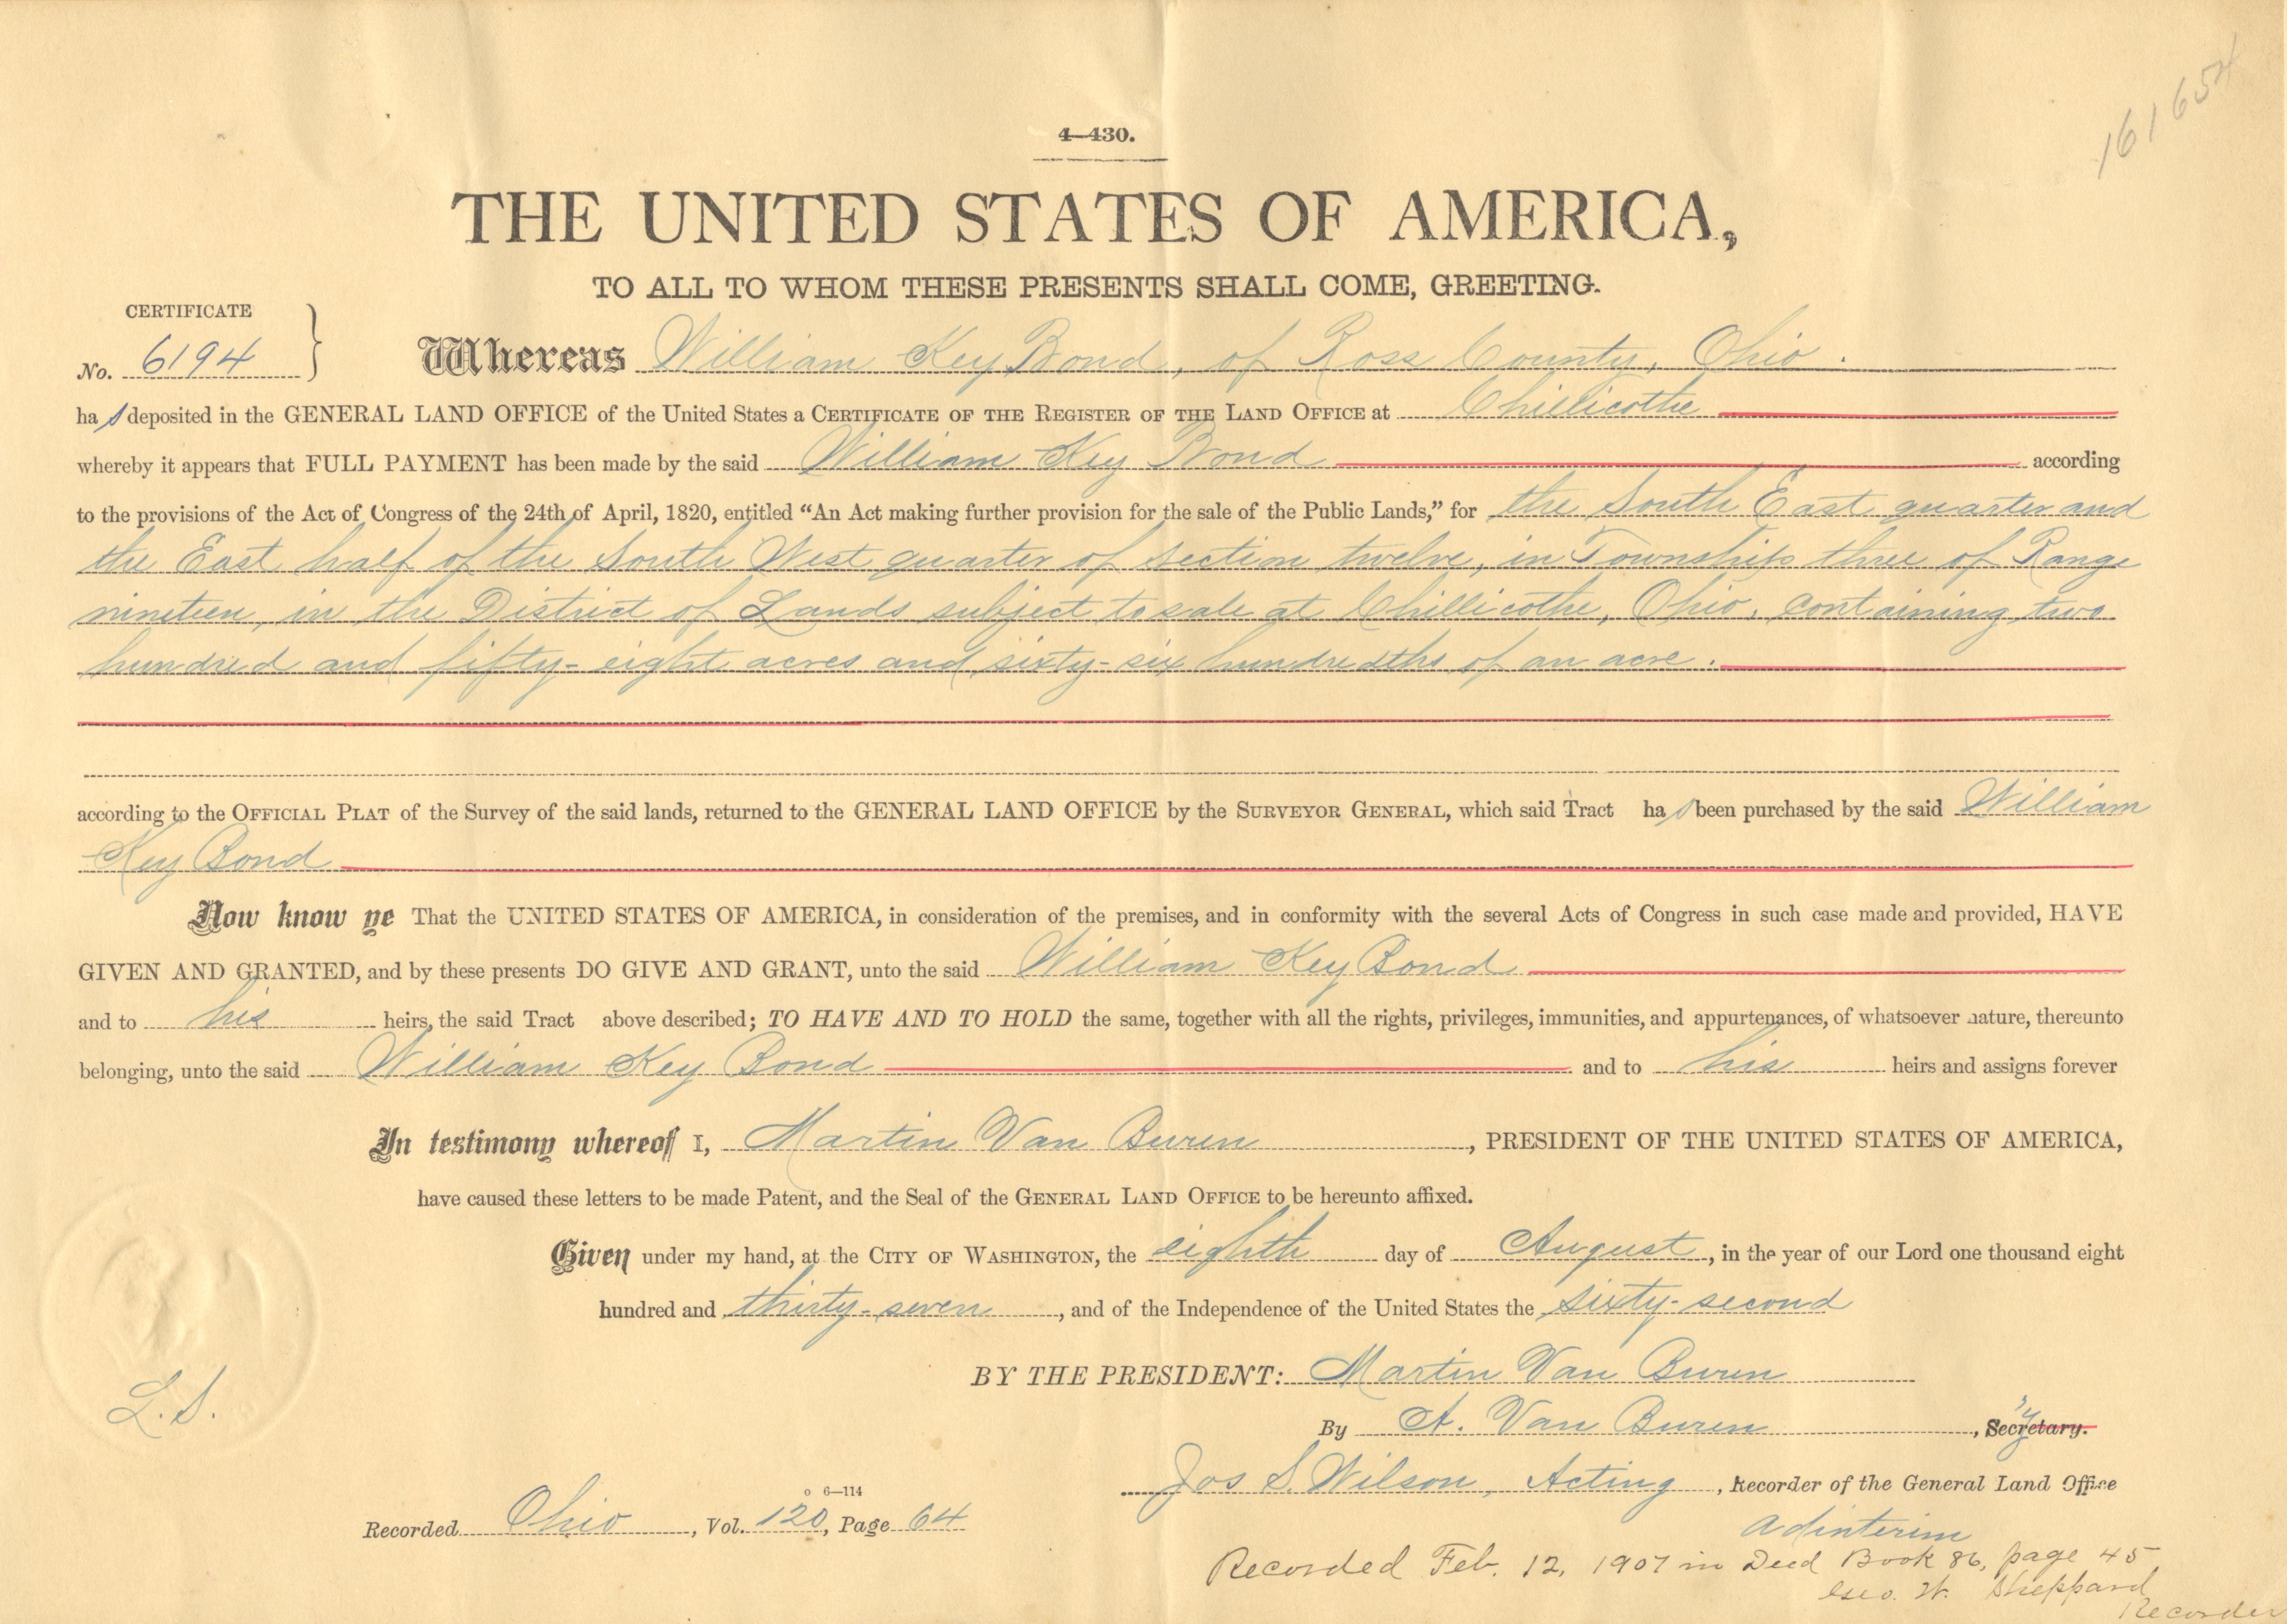 161654
4—430.
THE UNITED STATES OF AMERICA,
TO ALL TO WHOM THESE PRESENTS SHALL COME, GREETING.
CERTIFICATE
No. 6194
Whereas William Key Bond, of Ross County, Ohio.
has deposited in the GENERAL LAND OFFICE of the United States a CERTIFICATE OF THE REGISTER OF THE LAND OFFICE at Chillicothe
whereby it appears that FULL PAYMENT has been made by the said William Key Bond according
to the provisions of the Act of Congress of the 24th of April, 1820, entitled “An Act making further provision for the sale of the Public Lands,” for the South East quarter and
the East half of the South West quarter of section twelve, in Township three of Range
nineteen, in the District of Lands subject to sale at Chillicothe, Ohio, containing two
hundred and fifty-eight acres and sixty-six hundredths of an acre.
according to the OFFICIAL PLAT of the Survey of the said lands, returned to the GENERAL LAND OFFICE by the SURVEYOR GENERAL, which said Tract has been purchased by the said William
Key Bond
Now know ye That the UNITED STATES OF AMERICA, in consideration of the premises, and in conformity with the several Acts of Congress in such case made and provided, HAVE
GIVEN AND GRANTED, and by these presents DO GIVE AND GRANT, unto the said William Key Bond
and to his heirs, the said Tract above described; TO HAVE AND TO HOLD the same, together with all the rights, privileges, immunities, and appurtenances, of whatsoever nature, thereunto
belonging, unto the said William Key Bond and to his heirs and assigns forever
In testimony whereof I, Martin Van Buren, PRESIDENT OF THE UNITED STATES OF AMERICA,
have caused these letters to be made Patent, and the Seal of the GENERAL LAND OFFICE to be hereunto affixed.
Given under my hand, at the CITY OF WASHINGTON, the eighth day of August, in the year of our Lord one thousand eight
hundred and thirty-seven, and of the Independence of the United States the sixty-second
BY THE PRESIDENT: Martin Van Buren
By A. Van Buren, Sec'y
L.S.
Jos S. Wilson, Acting, Recorder of the General Land Office
ad interim
6—114
Recorded Ohio, Vol. 120, Page 64
Recorded Feb. 12, 1907 in Deed Book 86, page 45
Geo. W. Sheppard
Recorder